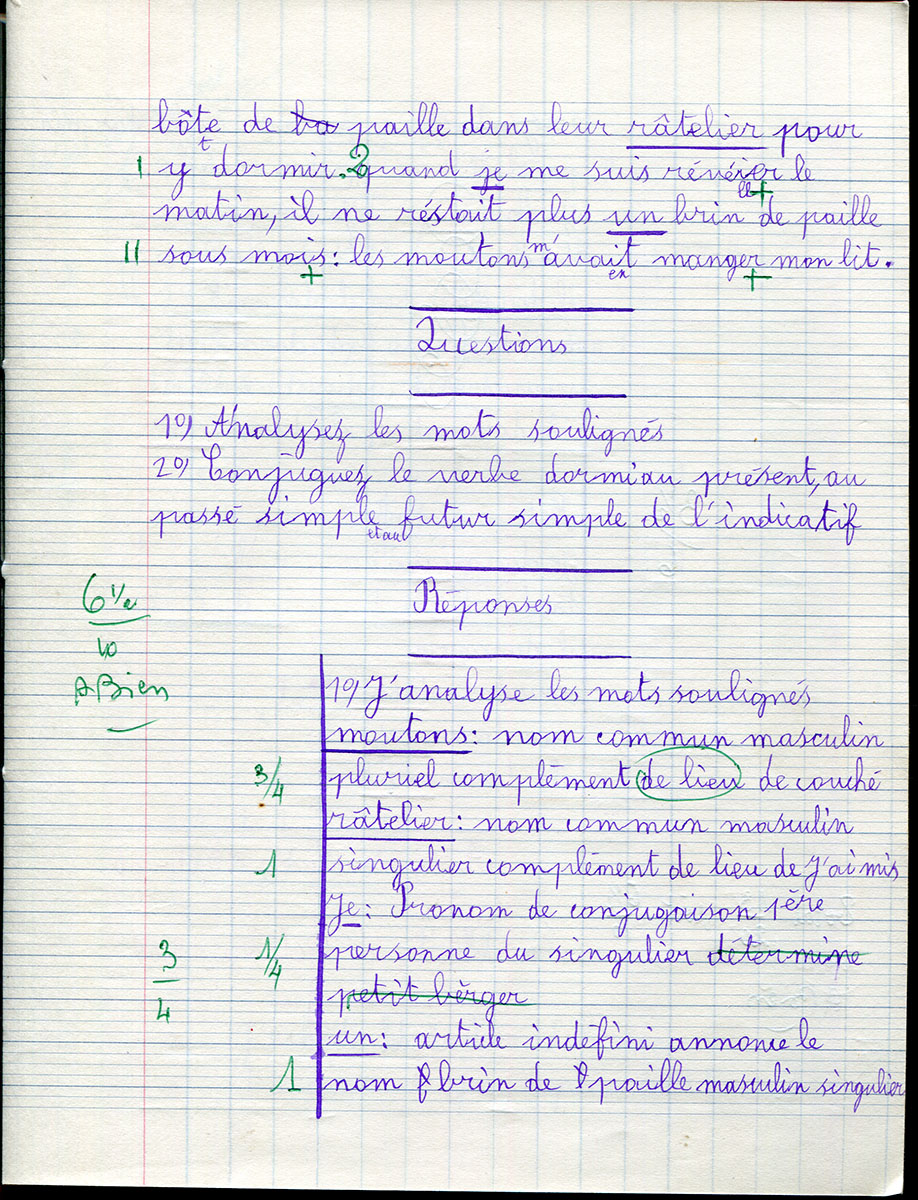 bôte de ba paille dans leur râtelier pour
t
I y dormir. 2 quand je me suis réveier le
ll +
matin, il ne réstait plus un brin de paille
II sous mois : les moutons m' avait manger mon lit.
+ en +
Questions
1º) Analysez les mots soulignés
2º) Conjuguez le verbe dormi au présent, au
passé simple et au futur simple de l'indicatif
Réponses
6 1/2
10
A Bien
1º) J'analyse les mots soulignés
moutons : nom commun masculin
3/4 pluriel complément de lieu de couché
râtelier : nom commun masculin
1 singulier complément de lieu de j'ai mis
Je : Pronom de conjugaison 1ère
3/4 1/4 personne du singulier détermine
petit bèrger
un : article indéfini annonce le
1 nom brin de paille masculin singulier